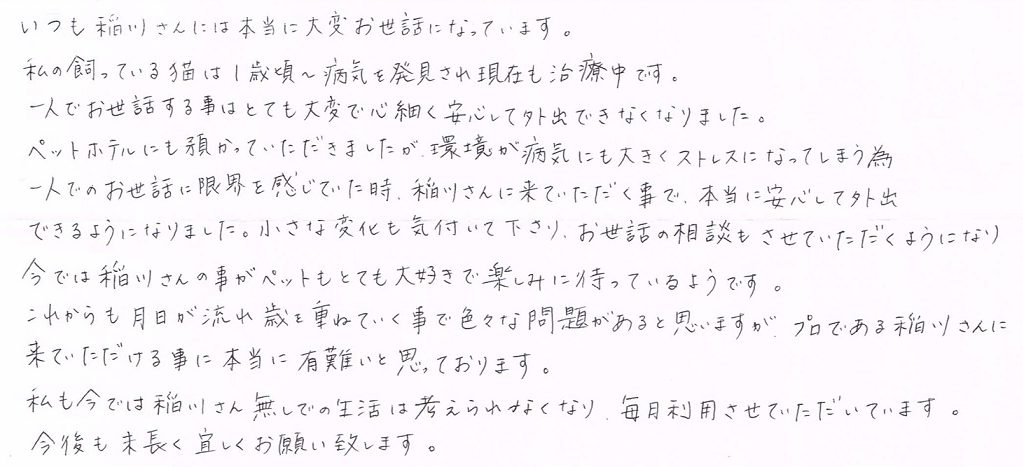 いつも稲川さんには本当に大変お世話になっています。
私の飼っている猫は1歳頃~病気を発見され現在も治療中です。
一人でお世話する事はとても大変で心細く安心して外出できなくなりました。
ペットホテルにも預かっていただきましたが、環境が病気にも大きくストレスになってしまう為
一人でのお世話に限界を感じていた時、稲川さんに来ていただく事で、本当に安心して外出
できるようになりました。小さな変化も気付いて下さり、お世話の相談もさせていただくようになり
今では稲川さんの事がペットもとても大好きで楽しみに待っているようです。
これからも月日が流れ歳を重ねていく事で色々な問題があると思いますが、プロである稲川さんに
来ていただける事に本当に有難いと思っております。
私も今では稲川さん無しでの生活は考えられなくなり、毎月利用させていただいています。
今後も末長く宜しくお願い致します。